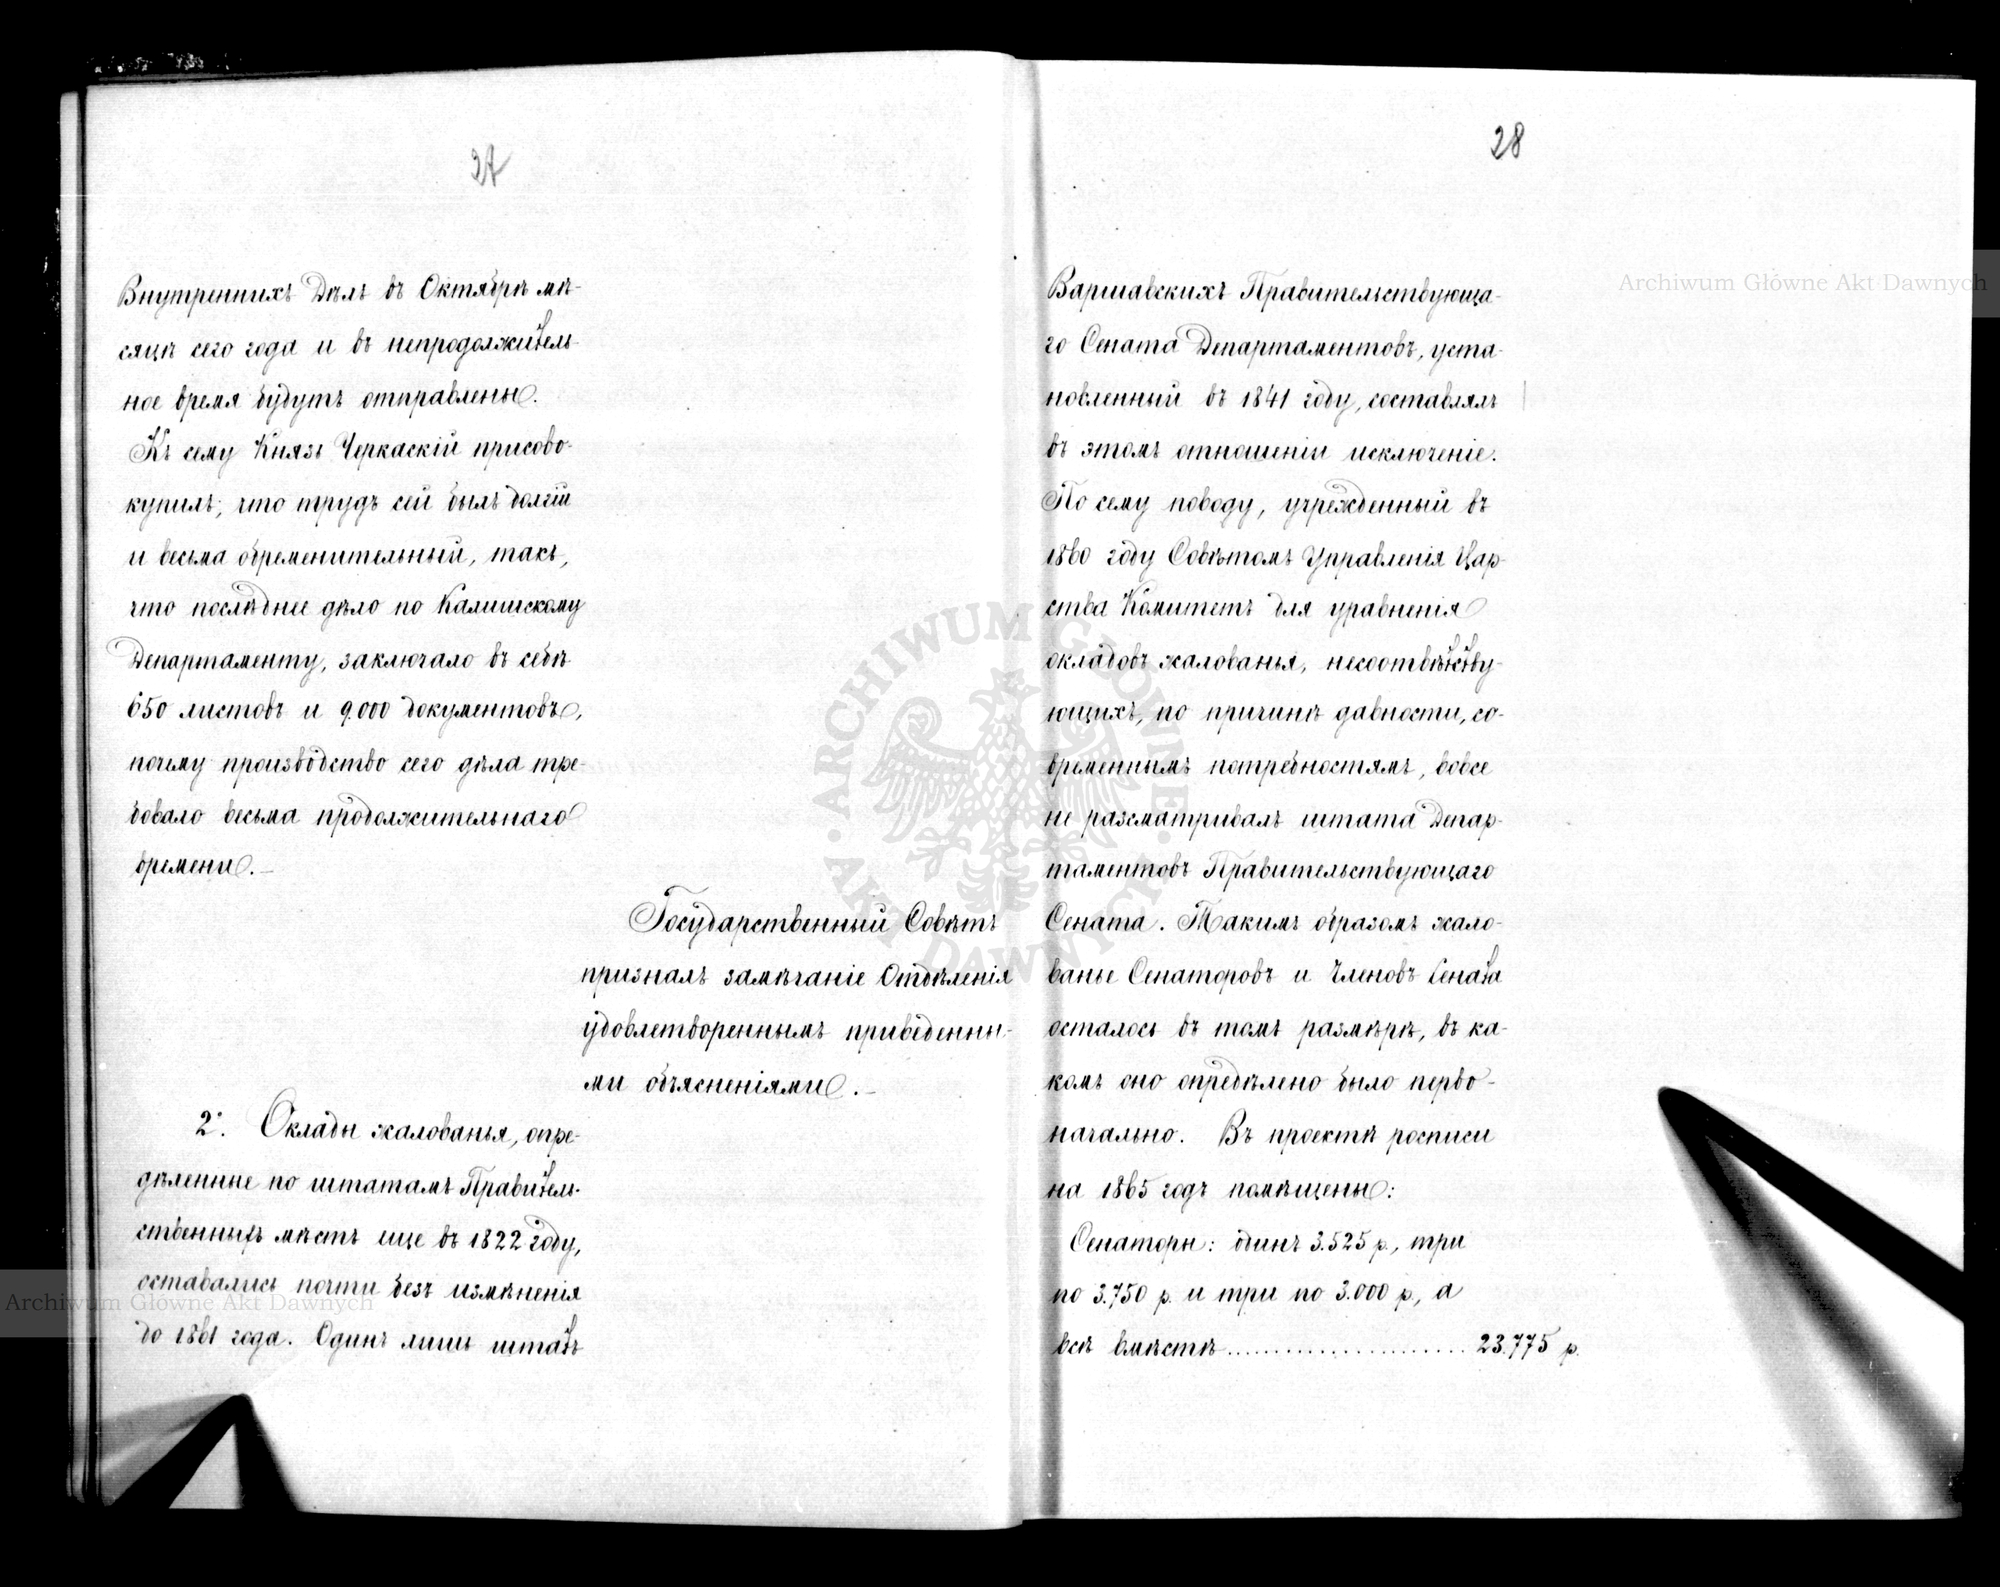 27
Внутреннихъ Дѣлъ въ Октябрѣ мѣ-
сяцѣ сего года и въ непродолжитель-
ное время будутъ отправлены.
Къ сему Князь Черкаскій присово-
купилъ, что трудъ сей былъ долгій
и весьма обременительный, такъ,
что послѣднее дѣло по Калишскому
Департаменту, заключало въ себѣ
650 листовъ и 9.000 документовъ,
почему производство сего дѣла тре-
бовало весьма продолжительнаго
времени.-
Государственный Совѣтъ
призналъ замѣчаніе Отдѣленія
удовлетвореннымъ приведенны-
ми объясненіями.-
2. Оклады жалованья, опре-
дѣленные по штатамъ Правитель-
ственныхъ мѣстъ еще въ 1822 году,
оставались почти безъ измѣненія
до 1861 года. Одинъ лишь штатъ
28
Варшавскихъ Правительствующа-
го Сената Департаментовъ, уста-
новленный въ 1841 году, составлялъ
въ этомъ отношеніи исключеніе.
По сему поводу, учрежденный въ
1860 году Совѣтомъ Управленія Цар-
ства Комитетъ для уравненія
окладовъ жалованья, несоотвѣтству-
ющихъ, по причинѣ давности, со-
временнымъ потребностямъ, вовсе
не разсматривалъ штата Депар-
таментовъ Правительствующаго
Сената. Такимъ образомъ жало-
ванье Сенаторовъ и Членовъ Сената
осталось въ томъ размѣрѣ, въ ка-
комъ оно опредѣлено было перво-
начально. Въ проектѣ росписи
на 1865 годъ помѣщены:
Сенаторы: одинъ 3.525 р., три
по 3.750 р. и три по 3.000 р., а
всѣ вмѣстѣ...................... 23.775 р.
Archiwum Główne Akt Dawnych
Archiwum Główne Akt Dawnych
ARCHIWUM GŁÓWNE AKT DAWNYCH